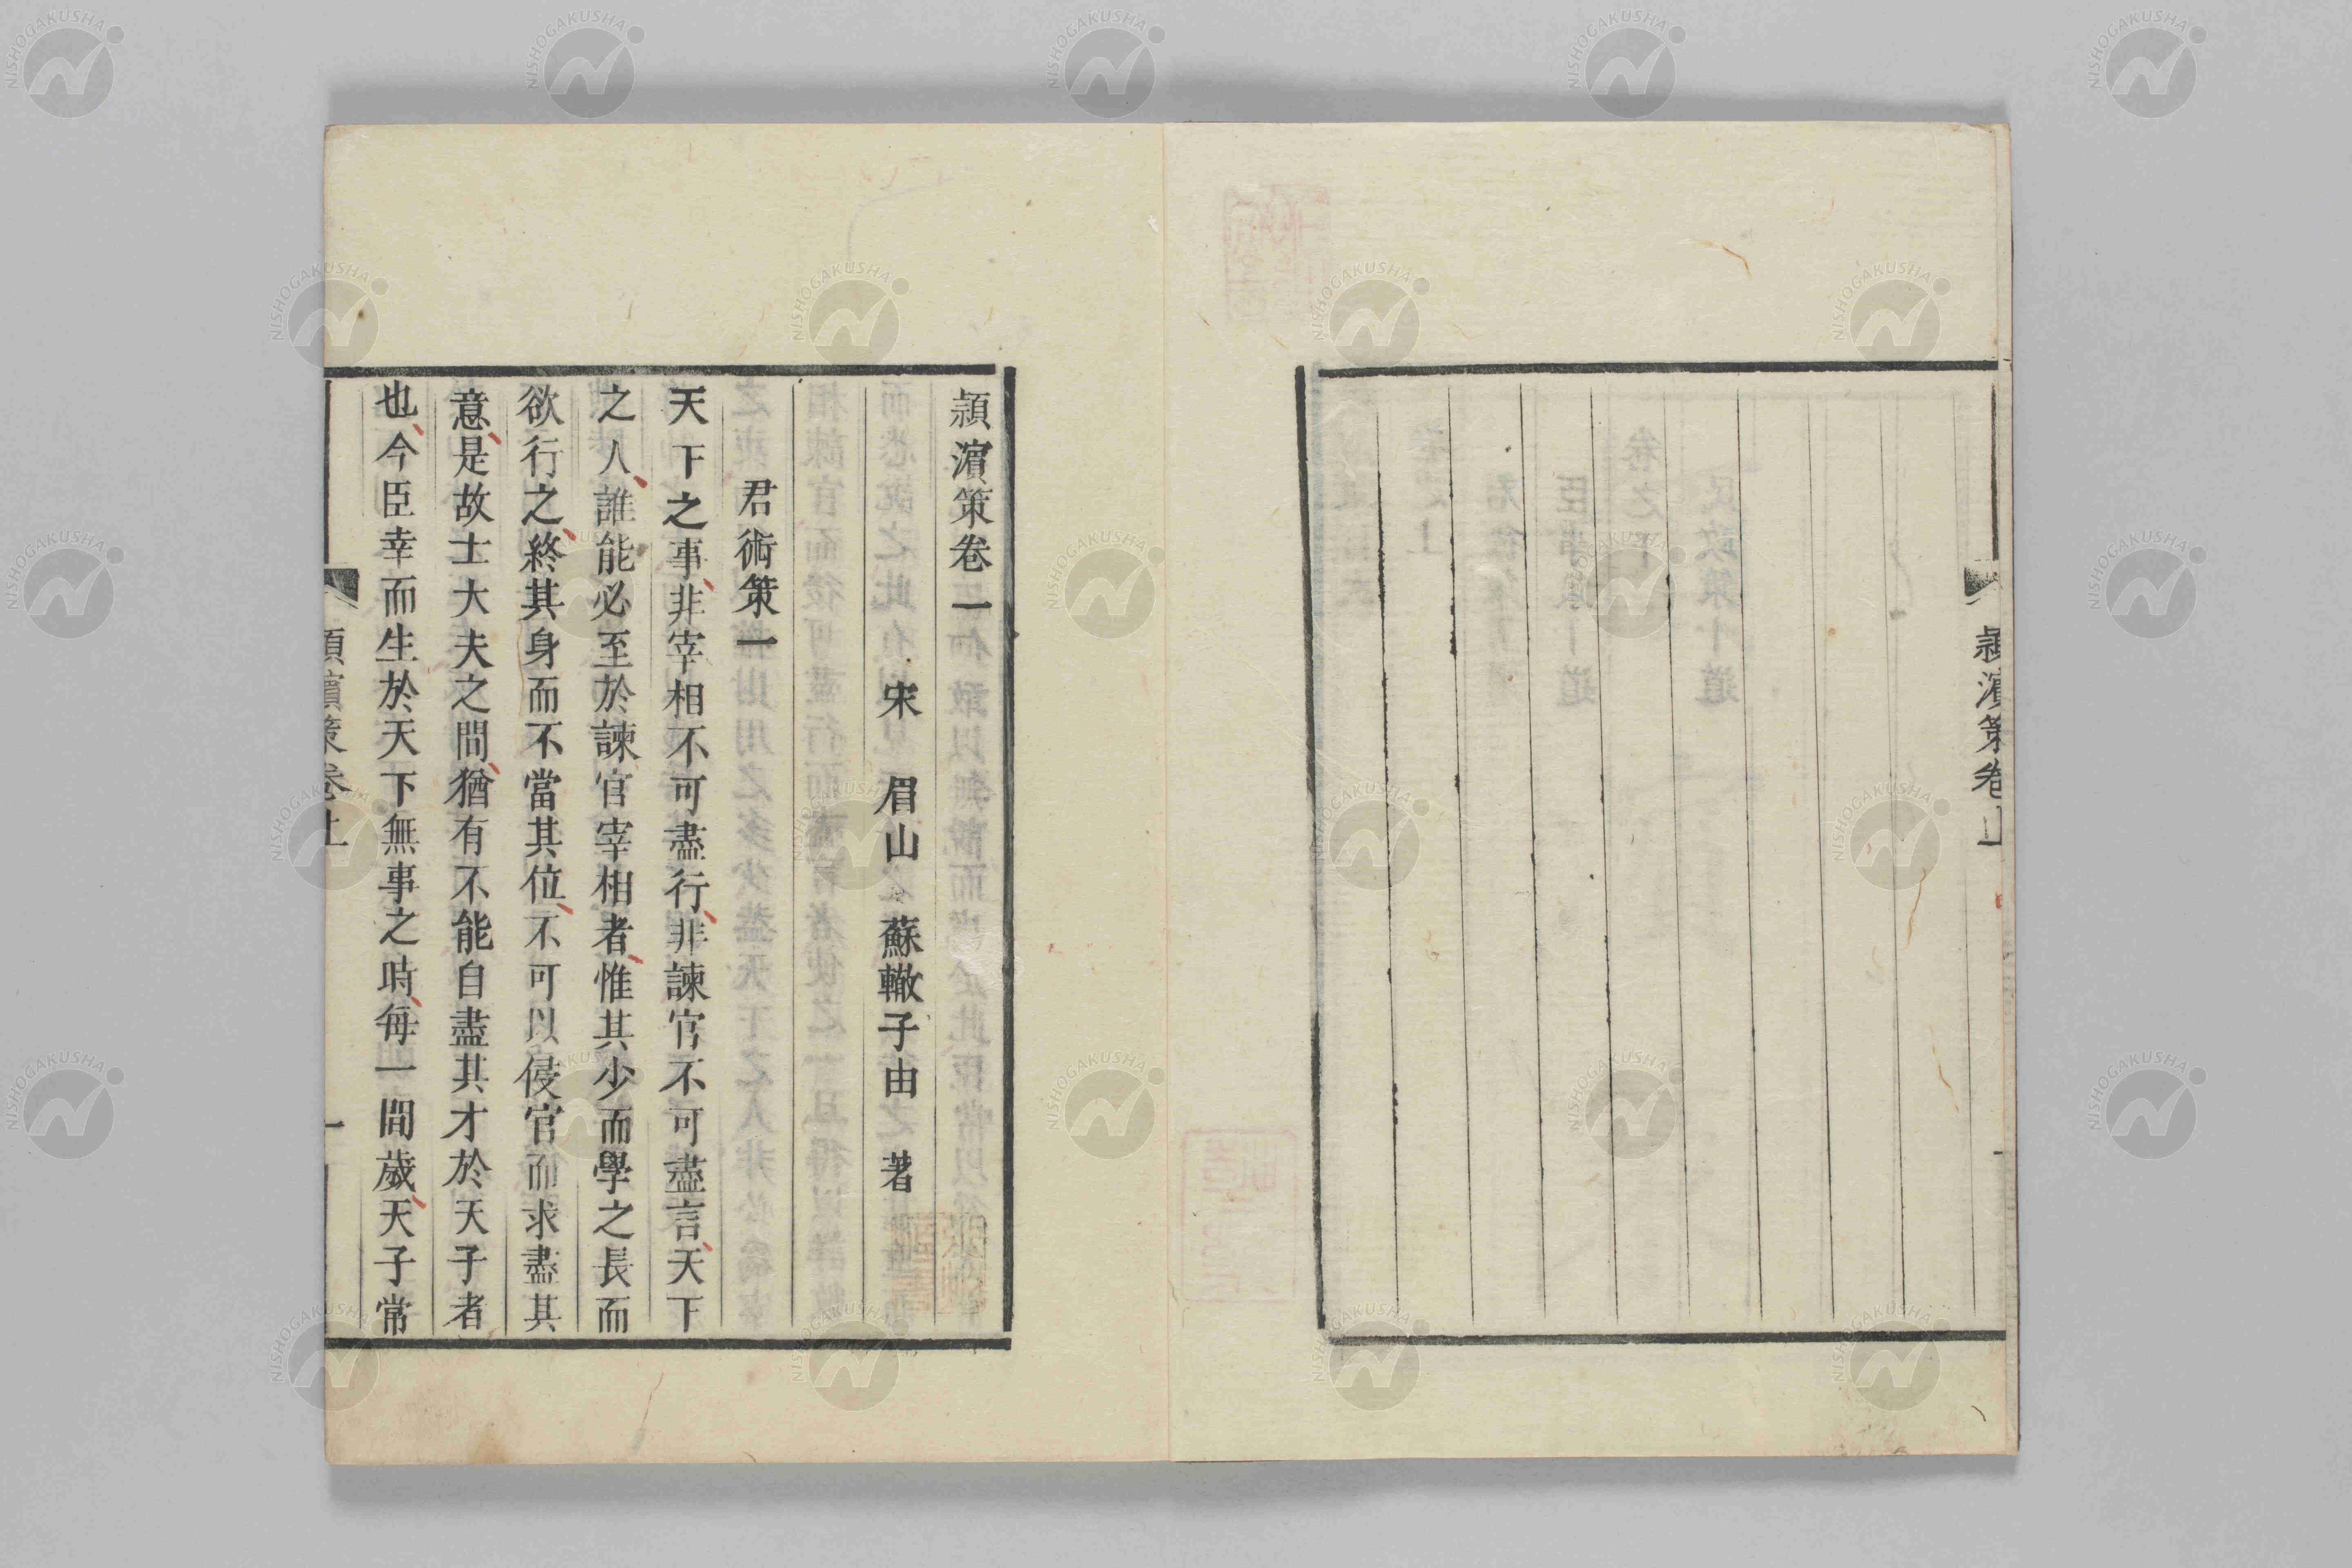 潁濱策卷上
潁濱策卷一
宋 眉山 蘇轍子由 著
君術策一
天下之事非宰相不可盡行非諫官不可盡言天下
之人誰能必至於諫官宰相者惟其少而學之長而
欲行之終其身而不當其位不可以侵官而求盡其
意是故士大夫之間猶有不能自盡其才於天子者
也今臣幸而生於天下無事之時每一間歲天子常
潁濱策卷上
一
NISHOGAKUSHA